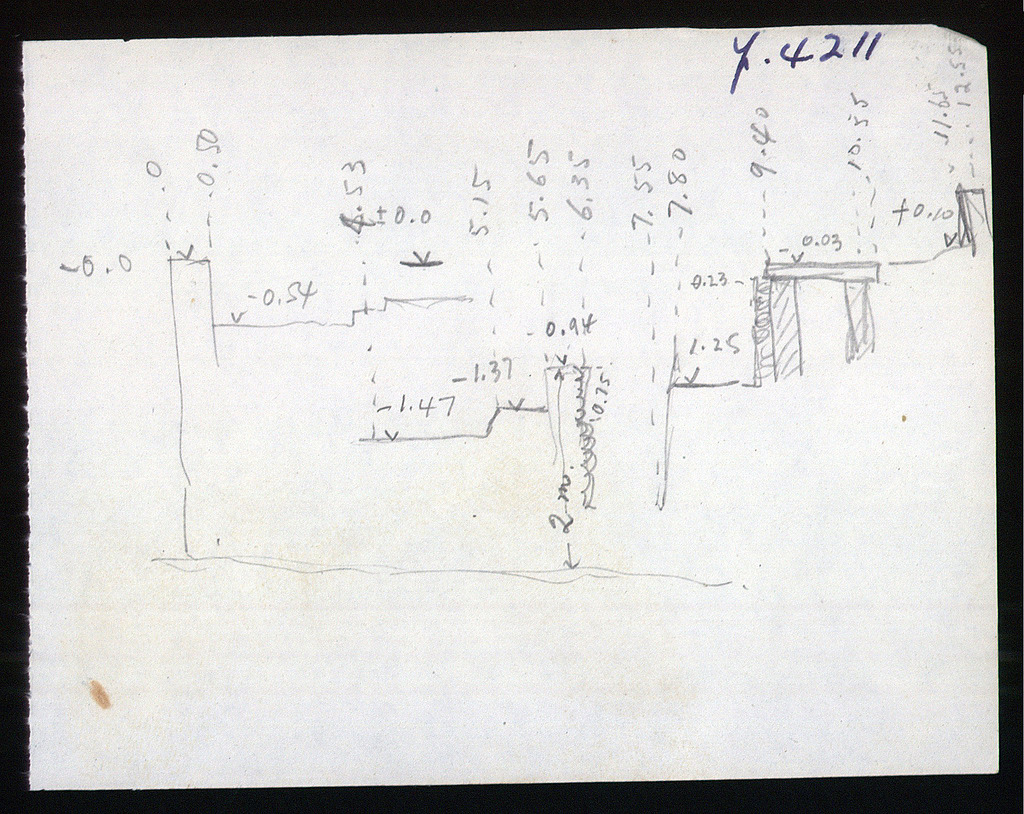 7.4211
.0
0.50
4.53
±0.0
5.15
5.65
6.35
7.55
7.80
9.40
10.55
11.65
12.55
-0.0
-0.54
-0.94
-1.37
-1.47
0.75
2 m.
1.25
0.23
-0.03
+0.10